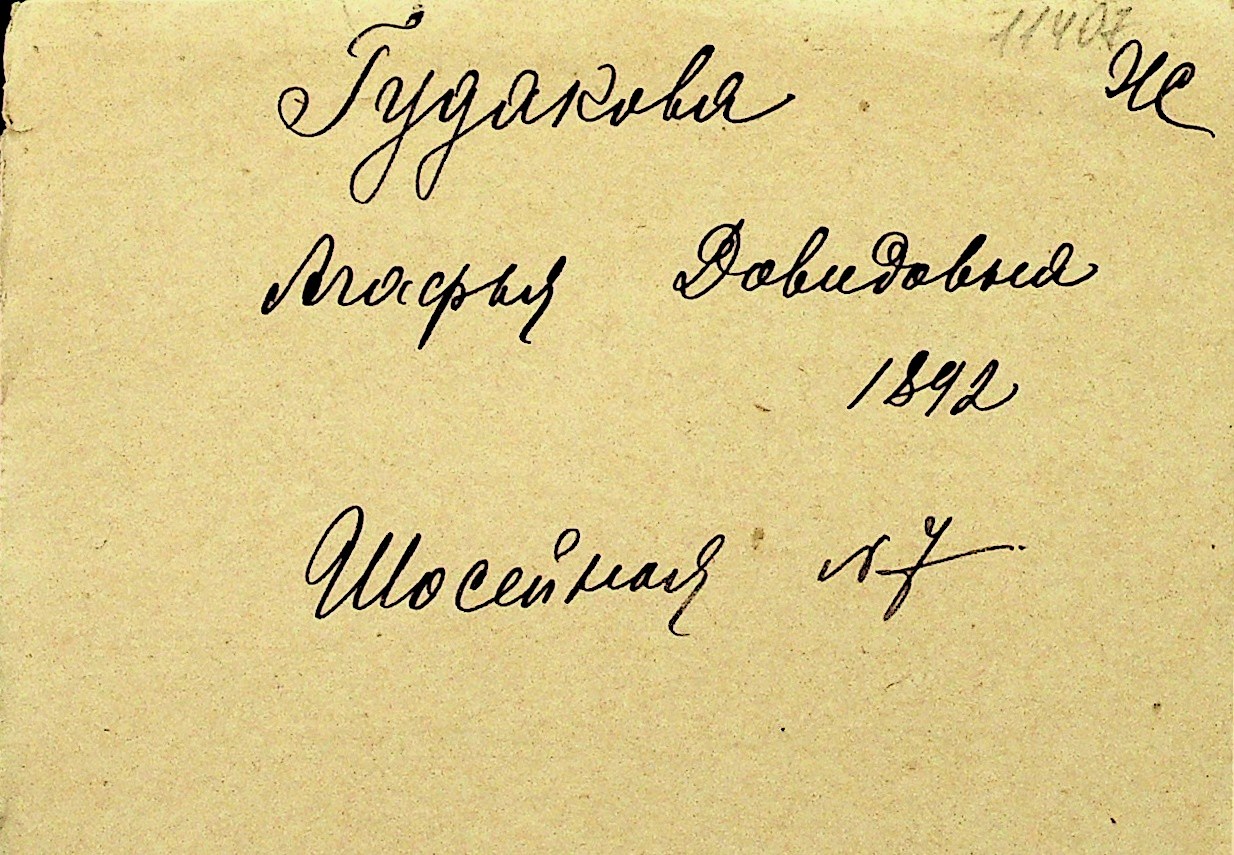 11407
Гудакова Ж
Агафья Довидовна
1892
Шосейная N 7